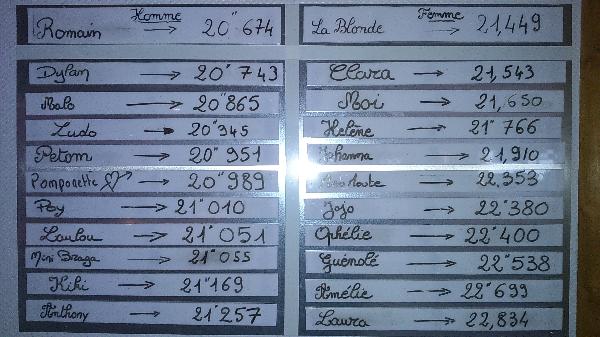 Homme
Romain → 20"674
Dylan → 20"743
Malo → 20"865
Ludo → 20"945
Petom → 20"951
Pomponette → 20"989
Pey → 21"010
Loulou → 21"051
Mini Braga → 21"055
Kiki → 21"169
Anthony → 21"257
Femme
La Blonde → 21,449
Clara → 21,543
Moi → 21,650
Helène → 21"766
Johanna → 21,910
→ 22,353
Jojo → 22"380
Ophélie → 22"400
Guénolé → 22"538
Amélie → 22"699
Laura → 22,834